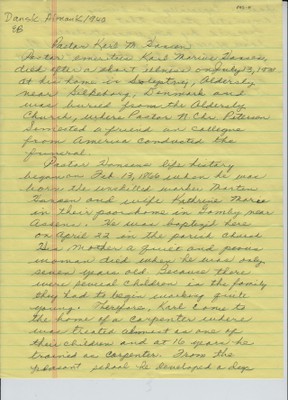 Dansk Almanak 1940
Pastor Karl M. Hansen
Pastor emeritus Karl Marius Hansen,
died after a short illness on July 13,
at his home in Aldersly
near Silkeborg, Denmark and
was buried from the Aldersly
Church, where Pastor N. Chr. Peterson
a friend an collegue
from America conducted the
funeral.
Pastor Hansens life history
began on Feb 13, 1866 when he was
born the unskilled worker Morten
Hansen and wife Kathrine Marea
in their poor home in Gamby near
Assens. He was baptized here
on April 22 in the parish church
His Mother a quiet and pious
woman died when he was only
seven years old. Because there
were several children in the family
they had to begin working quite
young. Therefore, Karl came to
the home of a carpenter where
was treated almost as one of
their children and at 16 years he
trained as carpenter. From the
peasant school he developed a deep